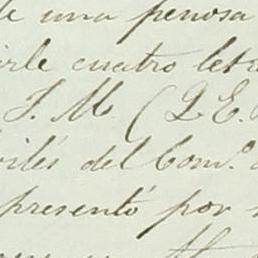 de una penosa
irle cuatro letra
S. M. (Q. E.
viles del Com.º
presentó por